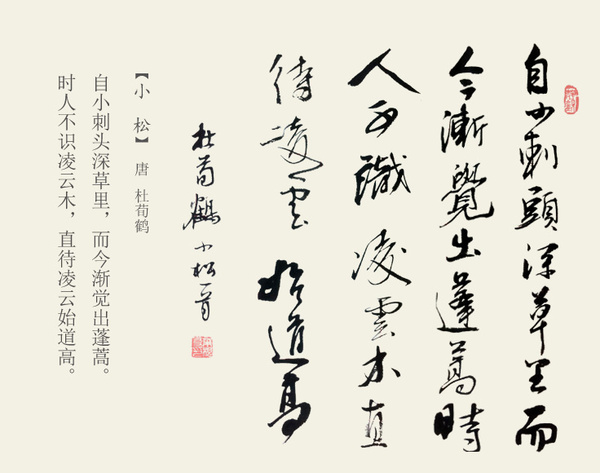 自小刺頭深草里而
今漸覺出蓬蒿時
人不識凌雲木直
待凌雲始道高
杜荀鶴小松一首
【小 松】 唐 杜荀鹤
自小刺头深草里，而今渐觉出蓬蒿。
时人不识凌云木，直待凌云始道高。